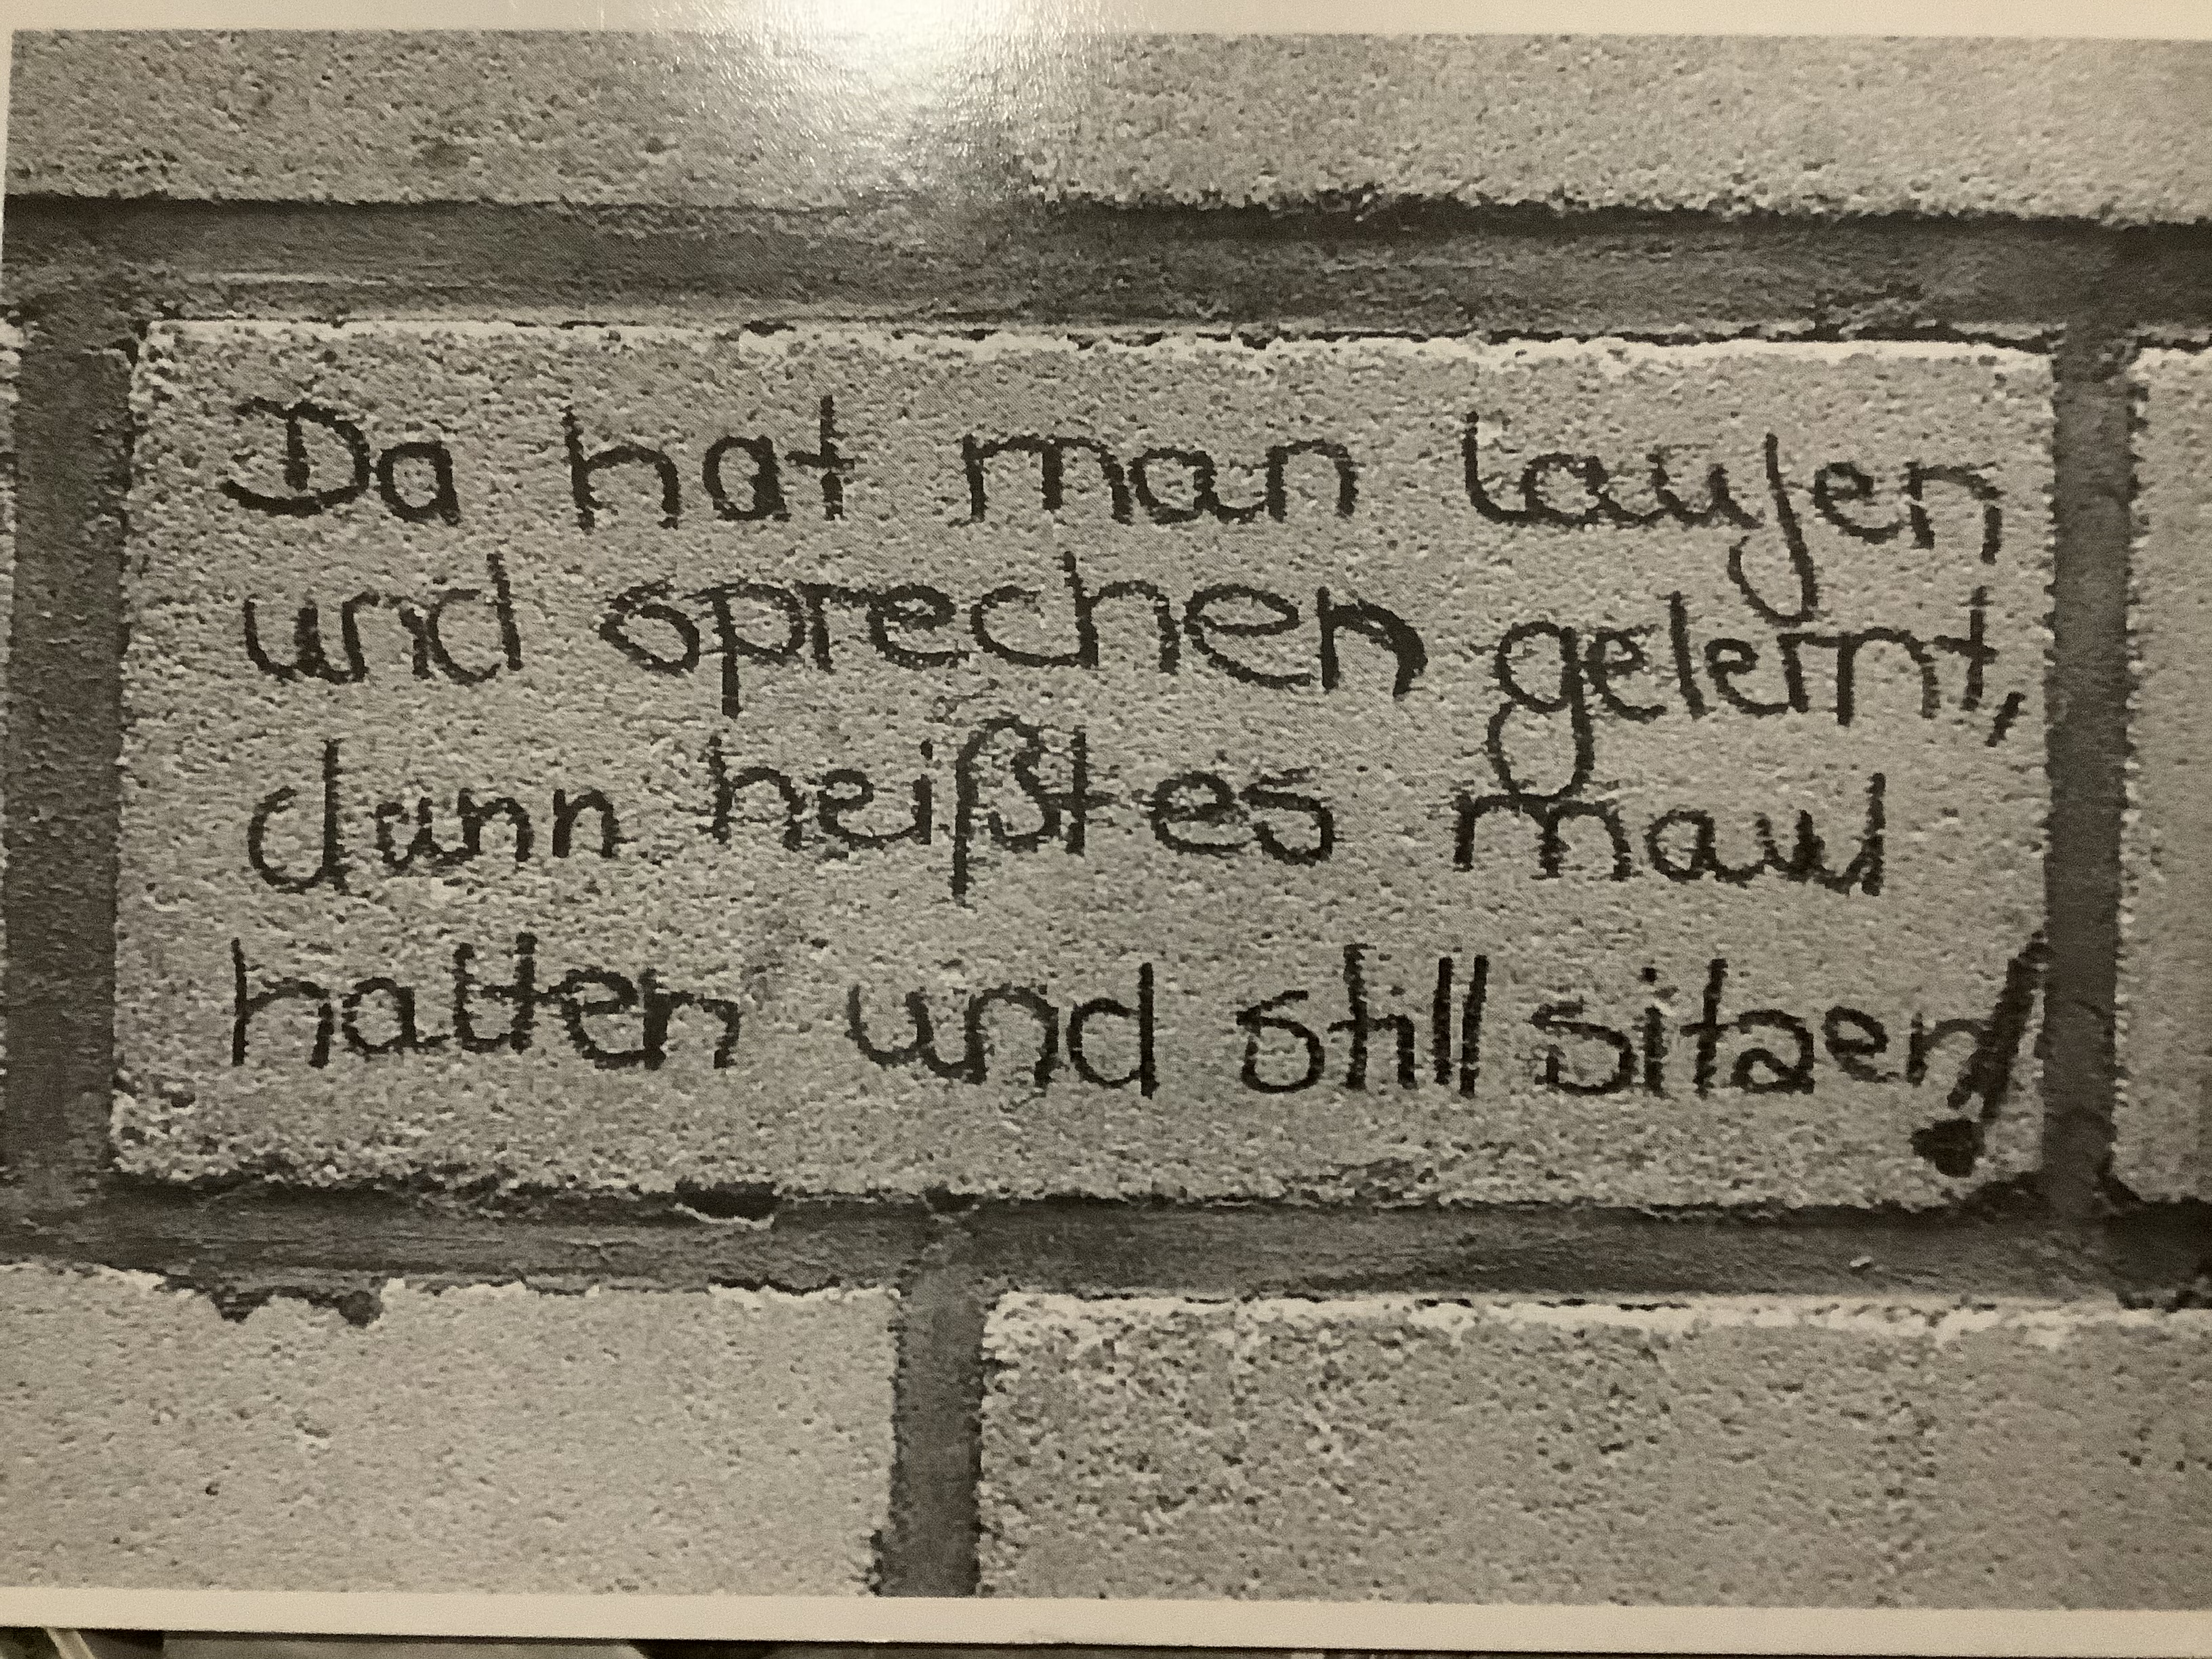 Da hat man laufen
und sprechen gelernt,
dann heißt es maul
halten und still sitzen!